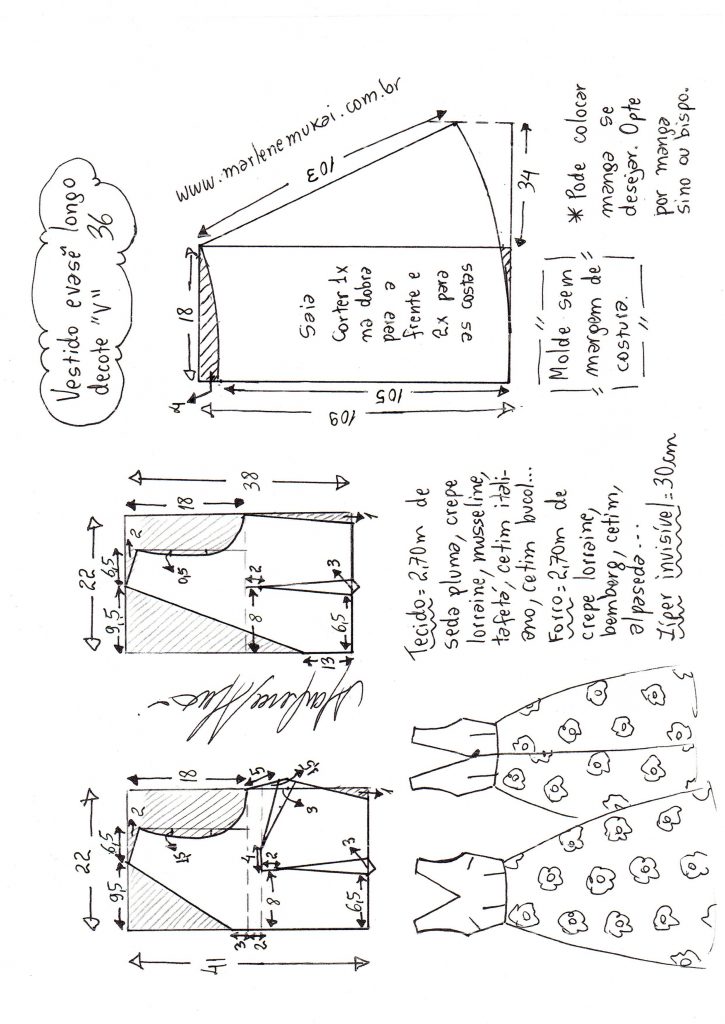 Vestido evasê longo
decote "V" 36
www.marlenemukai.com.br
18
103
4
34
105
109
Saia
Corter 1x
na dobra
para a
frente e
2x para
as costas
* Pode colocar
manga se
desejar. Opte
por manga
sino ou bispo.
Molde sem
margem de
costura.
22
9,5
6,5
2
18
38
0,5
2
8
3
6,5
13
1
Tecido = 2,70m de
seda pluma, crepe
lorraine, musseline,
tafetá, cetim itali-
ano, cetim bucol...
Forro = 2,70m de
crepe lorraine,
bemberg, cetim,
alpaseda...
Zíper invisível = 30cm
22
9,5
6,5
2
18
1,5
5
3
4
2
8
3
6,5
3
2
1
41